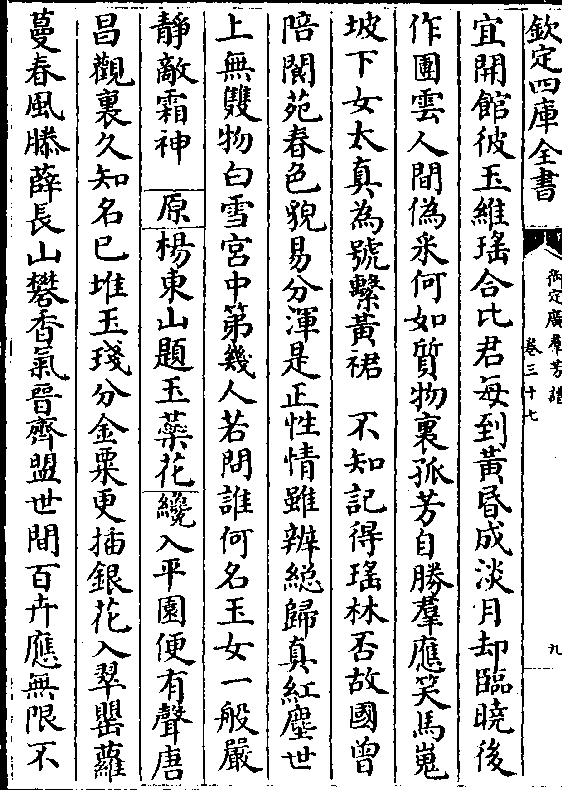 欽定四庫全書
御定廣羣芳譜
卷三十七
九
宜開館彼玉維瑤合比君每到黃昏成淡月却臨曉後
作團雲人間偽采何如質物裏孤芳自勝羣應笑馬嵬
坡下女太真為號繫黃裙　不知記得瑤林否故國曾
陪閬苑春色貌易分渾是正性情雖辨總歸真紅塵世
上無雙物白雪宮中第幾人若問誰何名玉女一般嚴
靜敵霜神　原楊東山題玉蘂花纔入平園便有聲唐
昌觀裏久知名已堆玉琖分金粟更插銀花入翠罌蘿
蔓春風滕薛長山礬香氣晉齊盟世間百卉應無限不